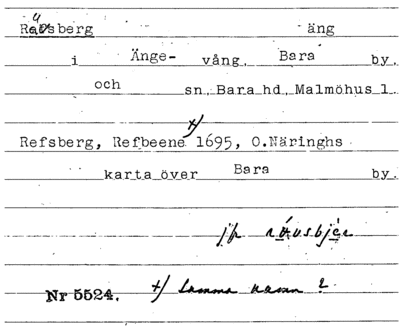 Rävsberg äng
i Änge- vång. Bara by.
och sn, Bara hd, Malmöhus l.
x/
Refsberg, Refbeene 1695, O.Näringhs
karta över Bara by.
jfr rävsbjèr
Nr 5524. x/ Samma namn?